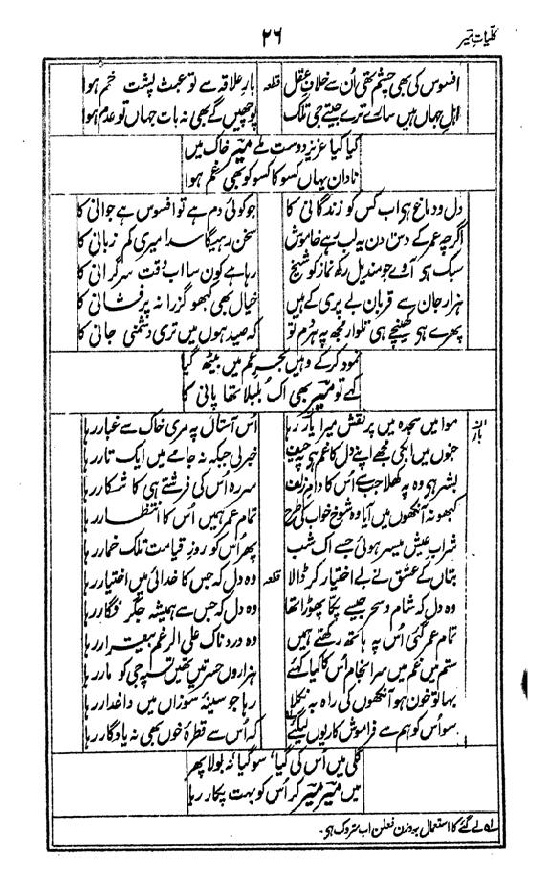 کلیاتِ میر
۲۶
افسوس کی بھی چشم تھی اُن سے خلافِ عقل قطعہ بارِ علاقہ سے تو عبث پشت خم ہوا
اہلِ جہاں ہیں سارے ترے جیتے جی تلک پوچھیں گے بھی نہ بات جہاں تو عدم ہوا
کیا کیا عزیز دوست ملے میر خاک میں
نادان یہاں کسو کا کسو کو بھی غم ہوا
دل و دماغ ہی اب کس کو زندگانی کا جو کوئی دم ہے تو افسوس ہے جوانی کا
اگرچہ عمر کے دس دن یہ لب رہے خاموش سخن رہیگا سدا میری کم زبانی کا
سبک ہو آوے جو مندیل رکھ نماز کو شیخ رہا ہے کون سا اب وقت سرگرانی کا
ہزار جان سے قربان بے پری کے ہیں خیال بھی کبھو گزرا نہ پر فشانی کا
پھرے ہی کھینچے ہی تلوار مجھ پہ ہر دم تو کہ صید ہوں میں تری دشمنی جانی کا
نمود کرکے وہیں بحرِ غم میں بیٹھ گیا
کہے تو میر بھی اک بُلبلا تھا پانی کا
موا میں سجدہ میں پر نقش میرا یار رہا اُس آستاں پہ مری خاک سے غبار رہا
جنوں میں ابکی مجھے اپنے دل کا غم ہی پہ حیف خبر لی جبکہ نہ جامے میں ایک تار رہا
بشر ہو وہ پہ کھلا جب سے اُس کا دامِ زلف سرِ رہ اس کی فرشتے ہی کا شکار رہا
کبھو نہ آنکھوں میں آیا وہ شوخ خواب کی طرح تمام عمر ہمیں اُس کا انتظار رہا
شرابِ عیش میسر ہوئی جسے اک شب پھر اُس کو روزِ قیامت تلک خمار رہا
بتاں کے عشق نے بے اختیار کر ڈالا قطعہ وہ دل کہ جس کا خدائی میں اختیار رہا
وہ دل کہ شام و سحر جیسے پکا پھوڑا تھا وہ دل کہ جس سے ہمیشہ جگر فگار رہا
تمام عمر گئی اُس پہ ہاتھ رکھتے ہمیں وہ دردناک علی الرغم بیقرار رہا
ستم میں غم میں سرانجام اُس کا کیا کہئے ہزاروں حسرتیں تھیں تس پہ جی کو مار رہا
بہا تو خون ہو آنکھوں کی راہ بہ نکلا رہا جو سینۂ سوزاں میں داغدار رہا
سو اُس کو ہم سے فراموش کاریوں لیگئے کہ اُس سے قطرۂ خوں بھی نہ یادگار رہا
گلی میں اُس کی گیا، سو گیا نہ بولا پھر
میں میر میر کر اُس کو بہت پکار رہا
لے گئے کا استعمال بر وزن فعلن اب متروک ہی۔